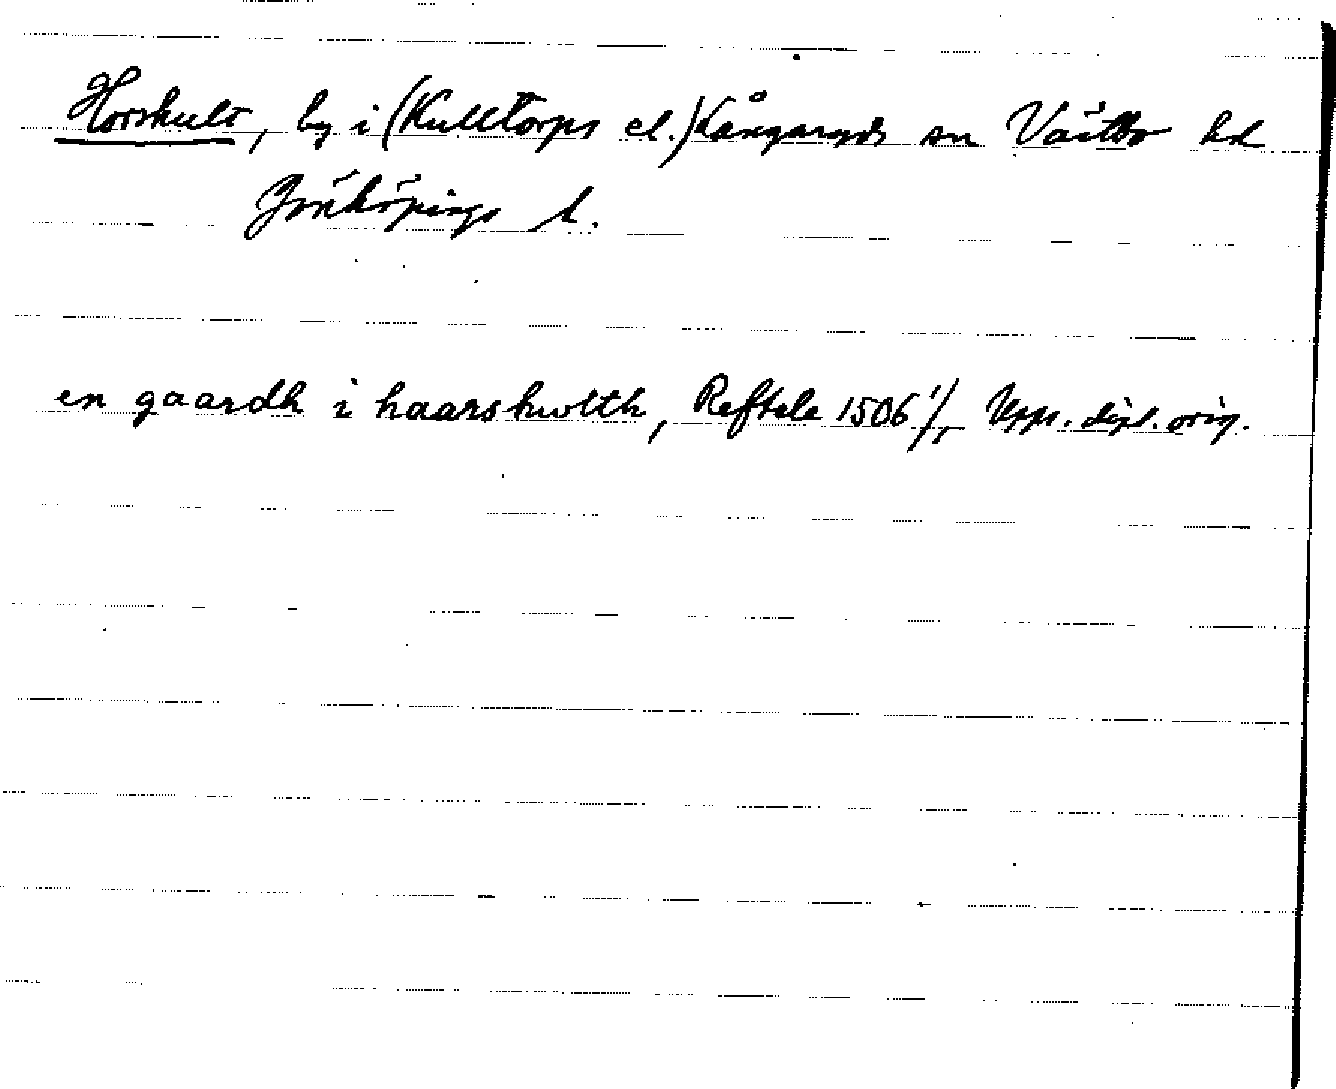 Horskult, by i (Kulltorps el.) Kångaryds sn Västbo hd
Jönköpings l.
en gaardh i haarshwlth, Reftele 1506 1/1, Upps. dipl. orig.